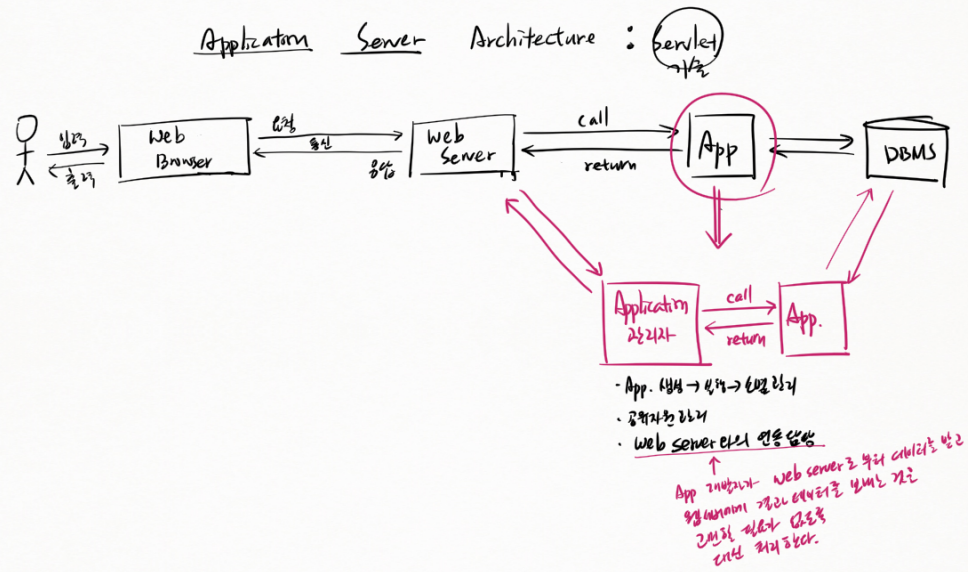 Application Server Architecture : Servlet
기술
입력
출력
Web
Browser
요청
통신
응답
Web
Server
call
return
App
DBMS
Application
관리자
call
return
App.
· App. 생성 → 실행 → 소멸 관리
· 공유자원 관리
· Web server와의 연동 담당
App 개발자가 Web server로 부터 데이터를 받고
웹서버에게 결과 데이터를 보내는 것을
고민할 필요가 없도록
대신 처리한다.